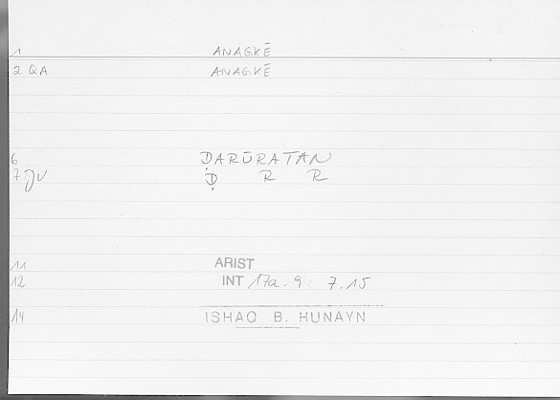 1 ANAGKĒ
2 QA ANAGKĒ
6 ḌARŪRATAN
7 JV Ḍ R R
11 ARIST
12 INT 17a 9: 7.15
14 ISHAQ B. HUNAYN